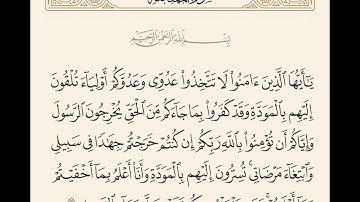 بِسْمِ اللَّهِ الرَّحْمَٰنِ الرَّحِيمِ
يَٰٓأَيُّهَا ٱلَّذِينَ ءَامَنُوا۟ لَا تَتَّخِذُوا۟ عَدُوِّى وَعَدُوَّكُمْ أَوْلِيَآءَ تُلْقُونَ
إِلَيْهِم بِٱلْمَوَدَّةِ وَقَدْ كَفَرُوا۟ بِمَا جَآءَكُم مِّنَ ٱلْحَقِّ يُخْرِجُونَ ٱلرَّسُولَ
وَإِيَّاكُمْ أَن تُؤْمِنُوا۟ بِٱللَّهِ رَبِّكُمْ إِن كُنتُمْ خَرَجْتُمْ جِهَٰدًا فِى سَبِيلِى
وَٱبْتِغَآءَ مَرْضَاتِى تُسِرُّونَ إِلَيْهِم بِٱلْمَوَدَّةِ وَأَنَا۠ أَعْلَمُ بِمَآ أَخْفَيْتُمْ